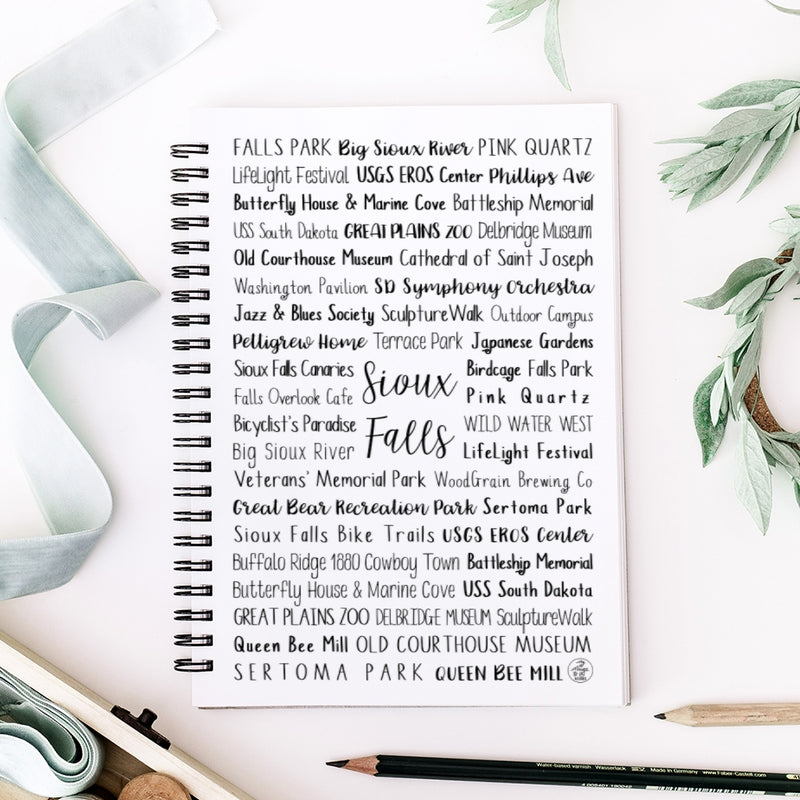 FALLS PARK Big Sioux River PINK QUARTZ
LifeLight Festival USGS EROS Center Phillips Ave
Butterfly House & Marine Cove Battleship Memorial
USS South Dakota GREAT PLAINS ZOO Delbridge Museum
Old Courthouse Museum Cathedral of Saint Joseph
Washington Pavilion SD Symphony Orchestra
Jazz & Blues Society SculptureWalk Outdoor Campus
Pettigrew Home Terrace Park Japanese Gardens
Sioux Falls Canaries Sioux Birdcage Falls Park
Falls Overlook Cafe Pink Quartz
Bicyclist's Paradise Falls WILD WATER WEST
Big Sioux River LifeLight Festival
Veterans' Memorial Park WoodGrain Brewing Co
Great Bear Recreation Park Sertoma Park
Sioux Falls Bike Trails USGS EROS Center
Buffalo Ridge 1880 Cowboy Town Battleship Memorial
Butterfly House & Marine Cove USS South Dakota
GREAT PLAINS ZOO DELBRIDGE MUSEUM SculptureWalk
Queen Bee Mill OLD COURTHOUSE MUSEUM
SERTOMA PARK QUEEN BEE MILL
Water-based varnish Wasserlack Made in Germany www.Faber-Castell.com